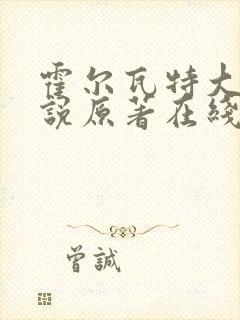 霍尔瓦特大
說原著在綫
曾誠